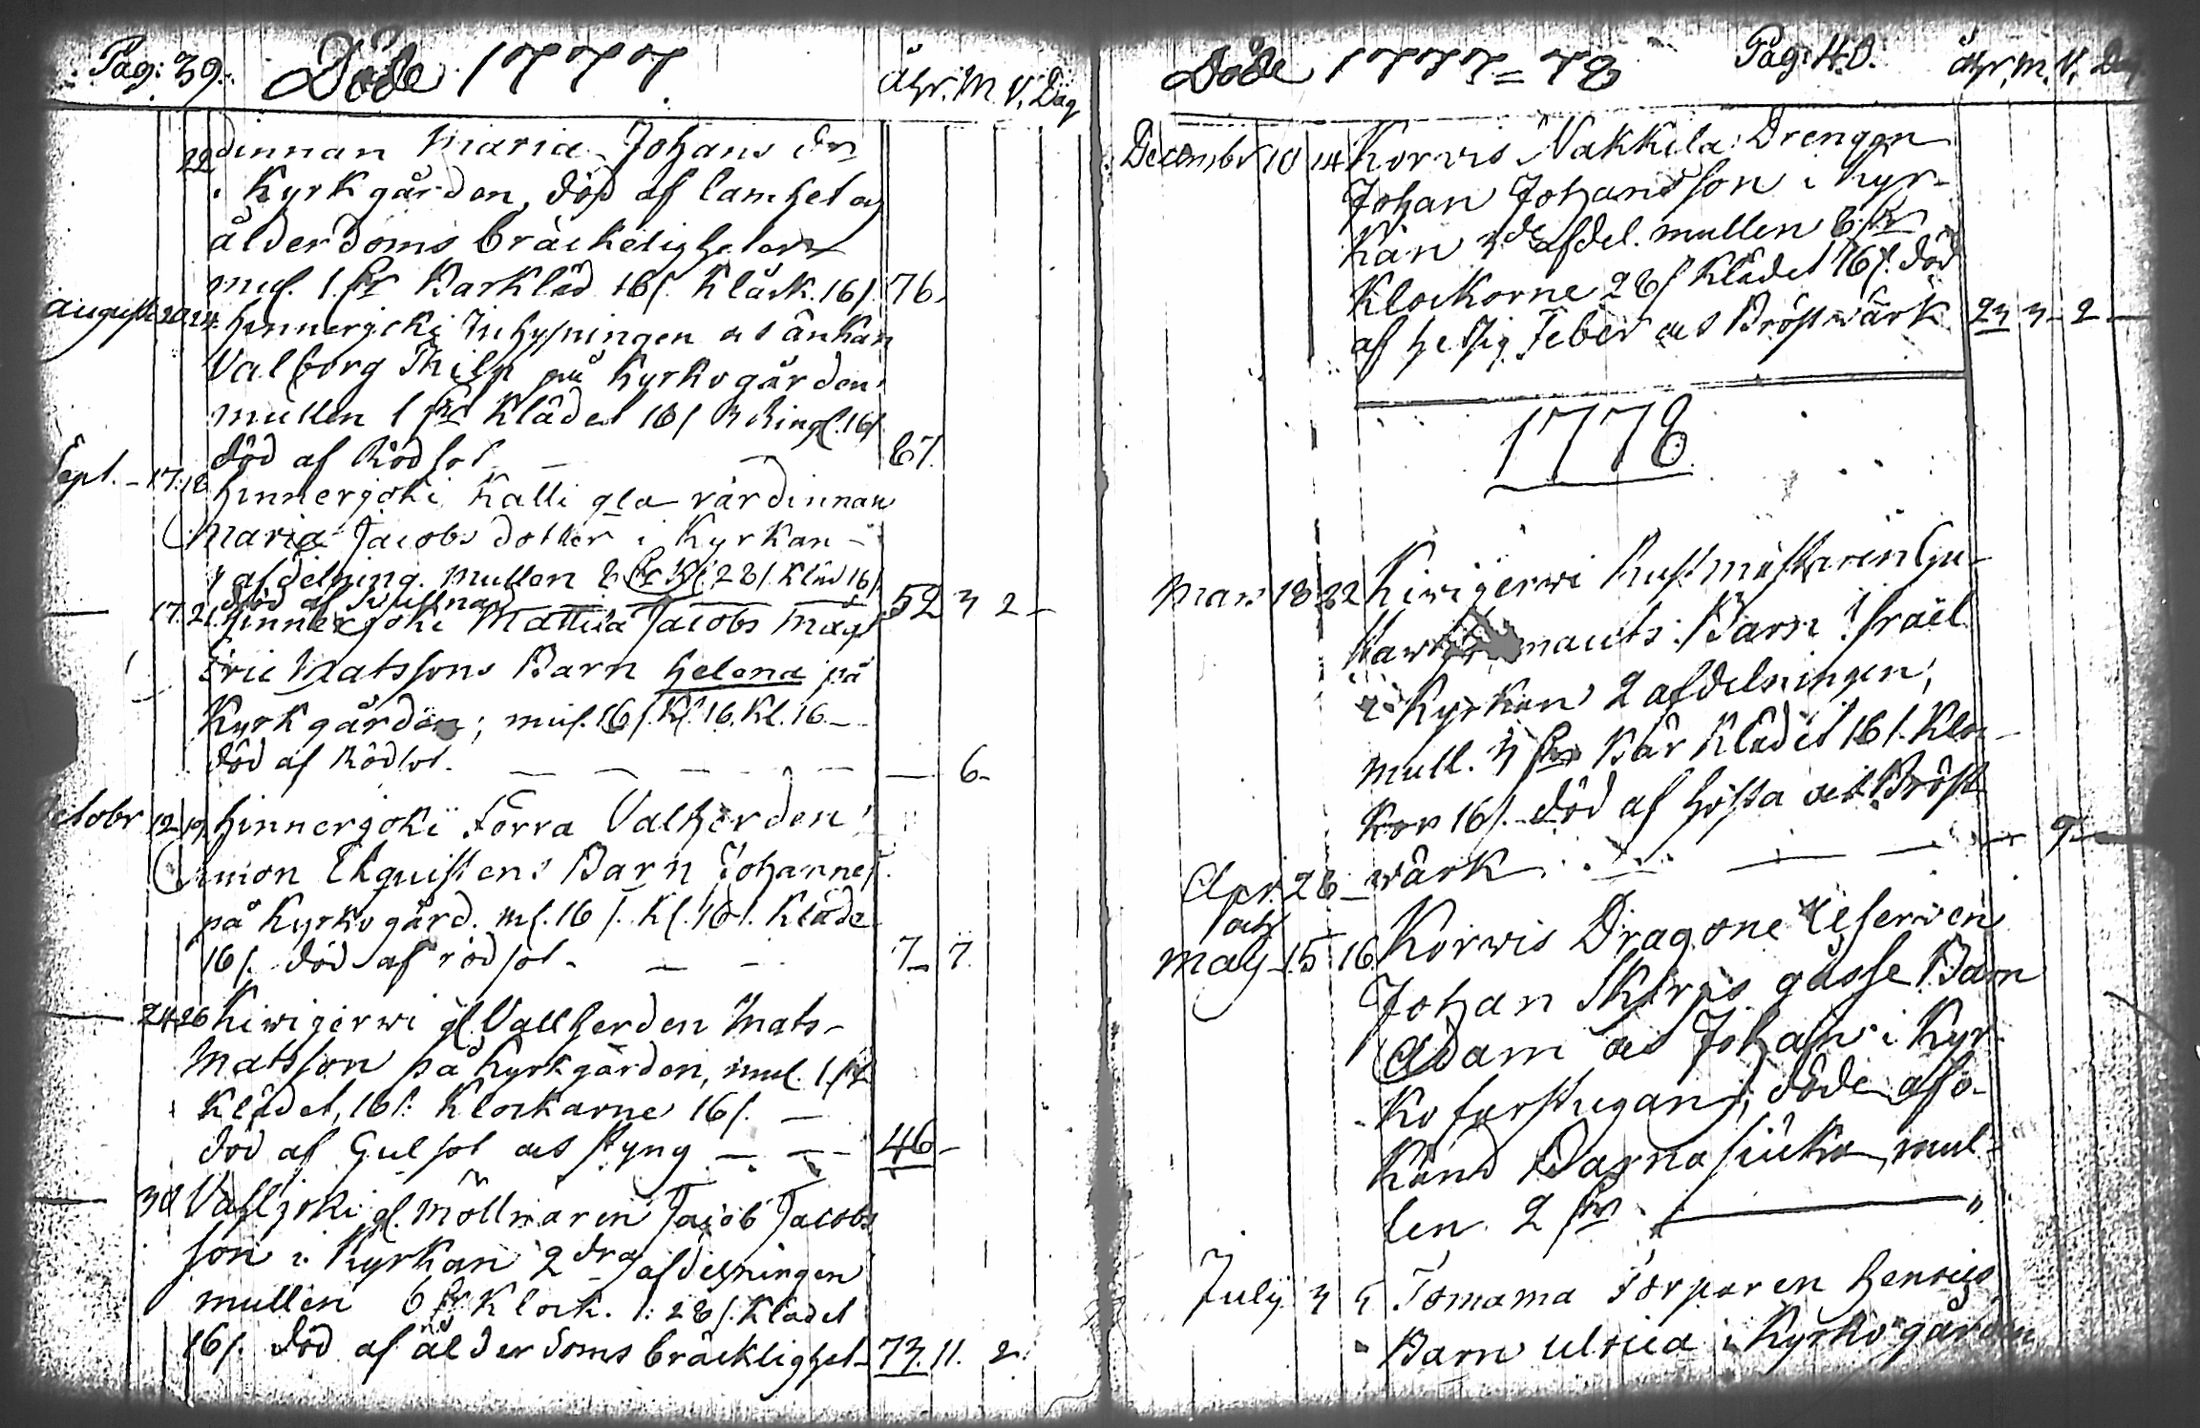 Pag: 39. Döde 1777 Åhr. M. V. Dag
22 dinnan Maria Johans dr
i Kyrkgården, död af lamhet och
ålderdoms bräckeligheter
mul. 1 Barkläd 16 s. Klåck. 16 s. 76.
August 20 24 Hinnerjoki Inhysningen och änkan
Valborg Thils på Kyrkogården
mullen 1 Klädet 16 s Ringl. 16 s
död af Rödsot 81.
Sept. - 17. 18 Hinnerjoki Kalli gla värdinnan
Maria Jacobs dotter i Kyrkan
afdelning. mullen 8 28 s. Kläd 16 s
död af 52 3 2 -
17. 21. Hinnerjoki Mattila Jacobs Mågs
Eric Matssons Barn Helena på
Kyrkgården; mul. 16 s. Kl. 16. Kl. 16 -
död af Rödsot. — — 6 -
October 12 19 Hinnerjoki Förra Valherden
Simon Ekquistens Barn Johannes
på Kyrkogård. ml. 16 s. Kl. 16 s. Kläde
16 s. död af rödsot - — 7 - 7.
24 26 Kiwijerwi gl. Vallherden Mats
Matsson på Kyrkgården, mul. 1
Klädet, 16 s: Klockarne 16 s. —
död af Gulsot och styng — 46 -
30 Vasljoki gl. Möllnaren Jacob Jacobs
son i Kyrkan 2dra afdelningen
mullen 6 Klock. 1: 28 s. Klädet
16 s. död af ålderdoms bräcklighet - 73. 11. 2.
Döde 1777 = 78 Pag: 40. Åhr. M. V. Dag
December 10 14 Korvis Nakkila Drengen
Johan Johansson i Kyr-
kan 3de afdel. mullen 8
Klockorne 28 s Klädet 16 s. död
af hetsig Feber och Bröstwärk 23 3 - 2 -
1778
Mars 18 22 Kiwijerwi Rustmästaren Gu-
nauts Barn Israel
i Kyrkan 2 afdelningen,
mull. 3 Bår Klädet 16 s. Kloc-
kor 16 s. död af hosta och Bröst
wärk — — 9 -
Apr. 28
och
May 15 16 Korwis Dragone Reserven
Johan Skörps gåsse Barn
Adam och Johan i Kyr-
koforstugan, döde af o-
känd Barnasiuka mul-
len. 2 — "
July 3 5 Tomama Torparen Henrics
Barn Ulrica i Kyrkogården